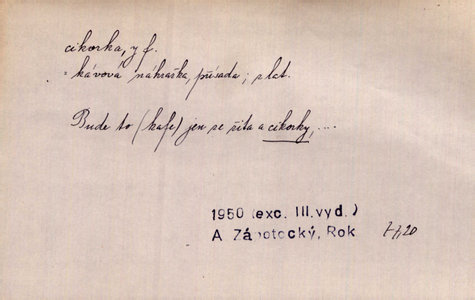 cikorka, y f.
= kávová náhražka, přísada; slat.
Bude to (kafe) jen se žita a cikorky, ...
1950 (exc. III.vyd.)
A. Zápotocký, Rok